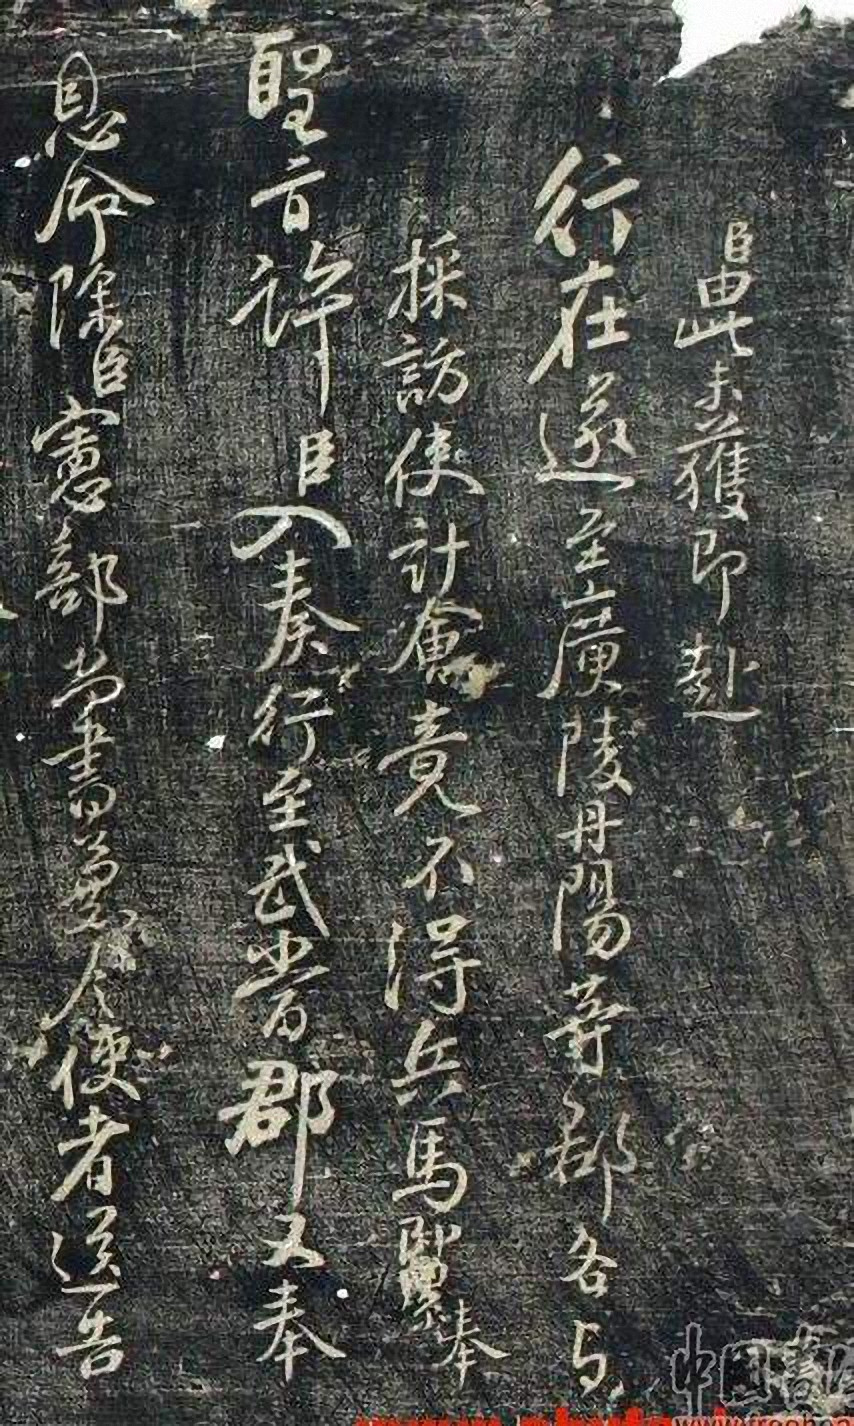 臣由此未獲即赴
行在遂至廣陵丹陽等郡各与
採訪使計會竟不得兵馬奉
聖旨許臣入奏行至武當郡又奉
恩命除臣憲部尚書兼令使者送告
中国書